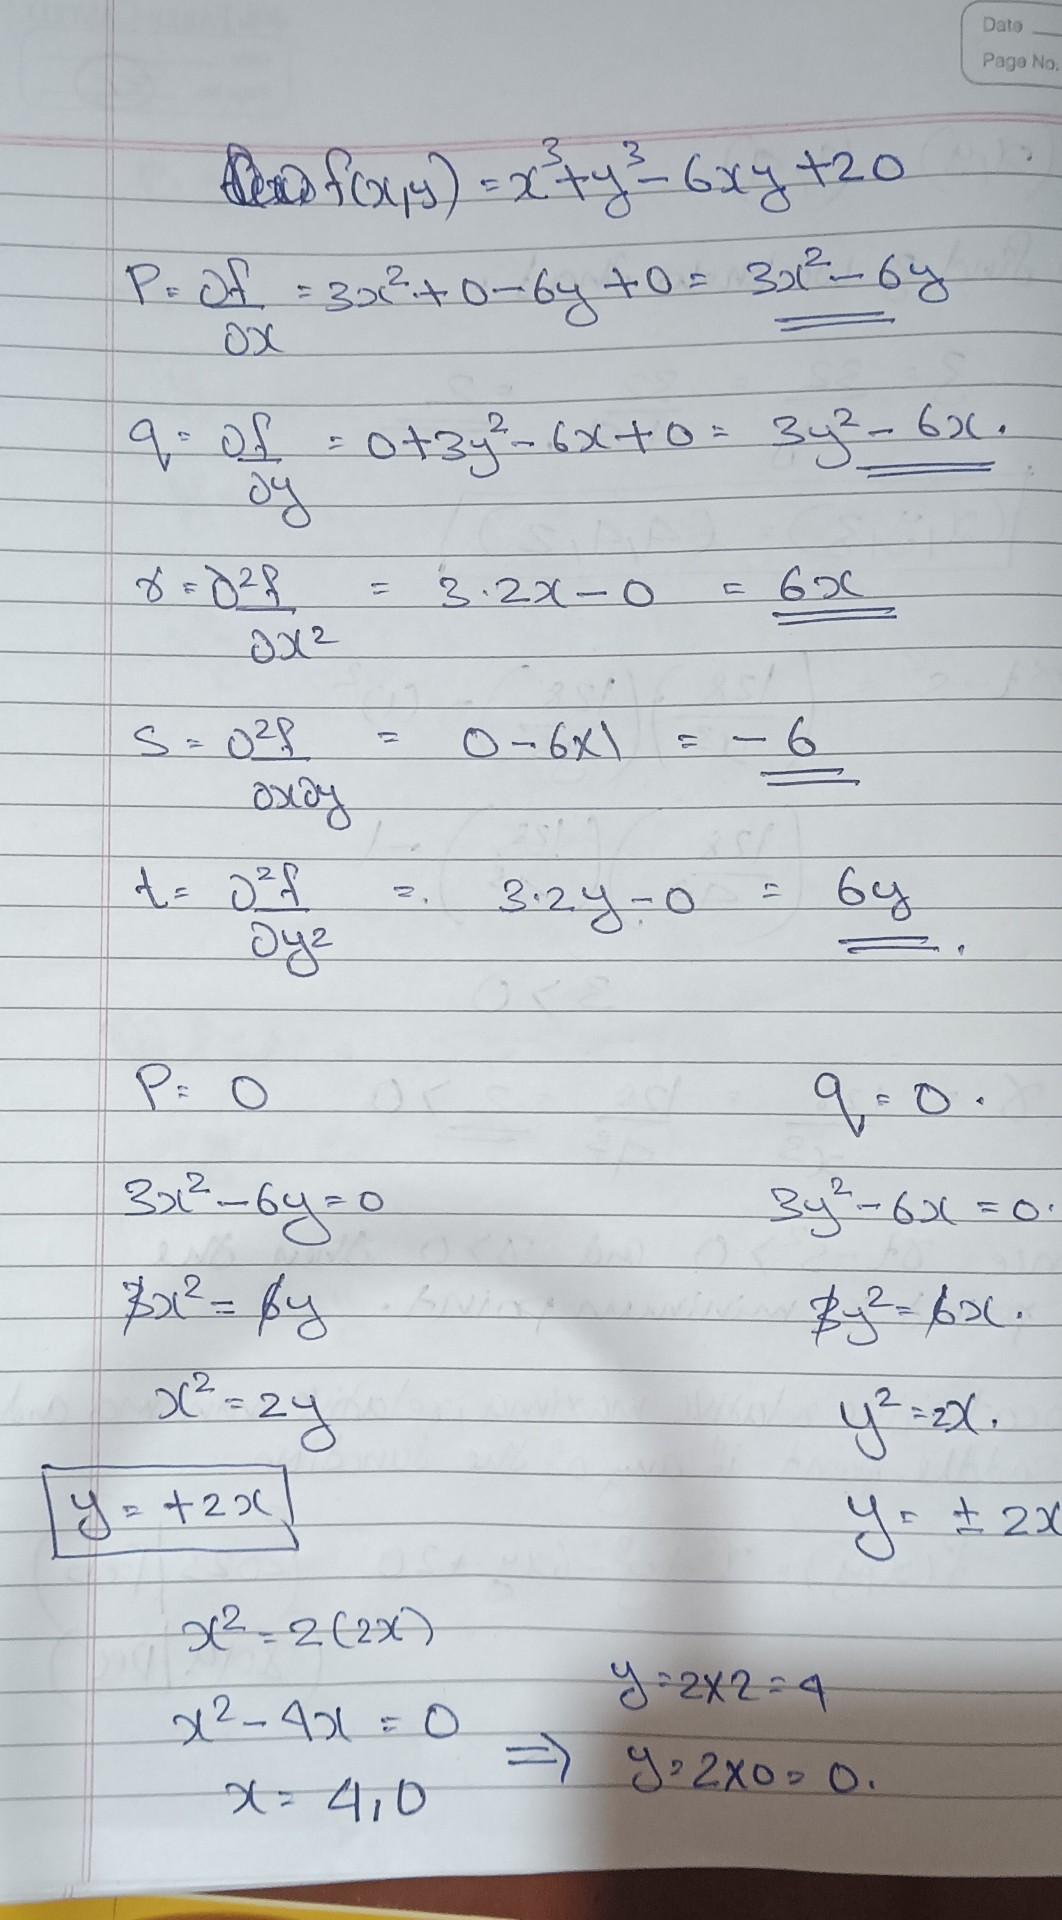 Date
Page No.
f(x,y) = x³+y³-6xy+20
P = ∂f/∂x = 3x²+0-6y+0 = 3x²-6y
q = ∂f/∂y = 0+3y²-6x+0 = 3y²-6x.
r = ∂²f/∂x² = 3.2x-0 = 6x
S = ∂²f/∂x∂y = 0-6x1 = -6
t = ∂²f/∂y² = 3.2y-0 = 6y
P = 0 q = 0.
3x²-6y=0 3y²-6x=0.
3x²=6y 3y²=6x.
x²=2y y²=2x.
y=+2x y=±2x
x²=2(2x)
y=2x2=4
x²-4x=0
⇒ y=2x0=0.
x=4,0